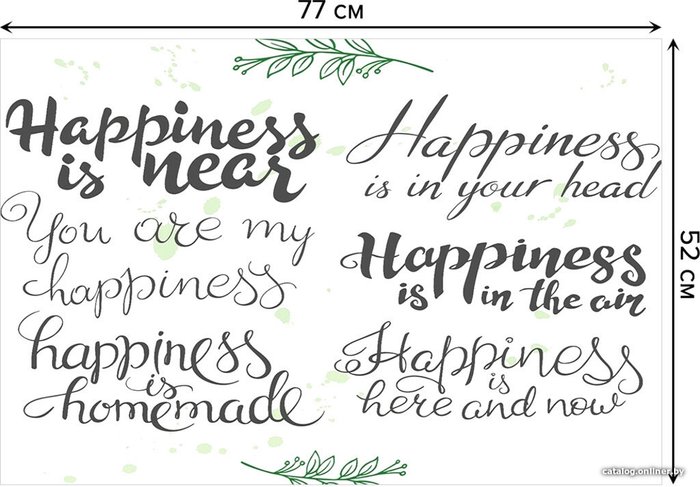 77 см
Happiness
is near
Happiness
is in your head
You are my
happiness
Happiness
is in the air
happiness
is
homemade
Happiness
is
here and now
52 см
catalog.onliner.by